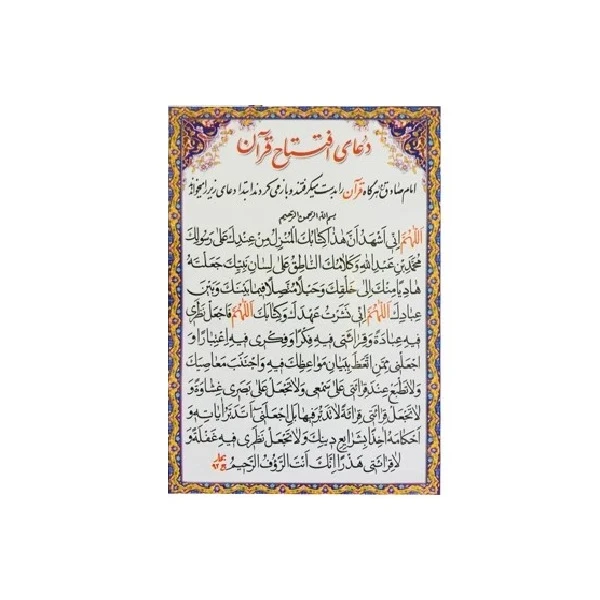 دعای افتتاح قرآن
امام صادق ع هرگاه قرآن را بدست میگرفتند و باز می کردند ابتدا دعای زیر را میخواندند
بسم الله الرحمن الرحیم
اَللّهُمَّ اِنّي اَشْهَدُ اَنَّ هٰذا كِتابُكَ المُنْزَلُ مِنْ عِنْدِكَ عَلى رَسُولِكَ
مُحَمَّدِ بْنِ عَبْدِ اللهِ وَ كَلامُكَ النّاطِقُ عَلى لِسانِ نَبِيِّكَ جَعَلْتَهُ
هادِياً مِنْكَ اِلى خَلْقِكَ وَ حَبْلاً مُتَّصِلاً فيما بَيْنَكَ وَ بَيْنَ
عِبادِكَ اَللّهُمَّ اِنّي نَشَرْتُ عَهْدَكَ وَ كِتابَكَ اَللّهُمَّ فَاجْعَلْ نَظَري
فيهِ عِبادَةً وَ قِرائَتي فيهِ فِكْراً وَ فِكْري فيهِ اِعْتِباراً وَ
اجْعَلْني مِمَّنِ اتَّعَظَ بِبَيانِ مَواعِظِكَ فيهِ وَ اجْتَنَبَ مَعاصِيَكَ
وَ لا تَطْبَعْ عِنْدَ قِرائَتي عَلى سَمْعي وَ لا تَجْعَلْ عَلى بَصَري غِشاوَةً وَ
لا تَجْعَلْ قِرائَتي قِرائَةً لا تَدَبُّرَ فيها بَلِ اجْعَلْني اَتَدَبَّرُ اياتِهِ وَ
اَحْكامَهُ اخِذاً بِشَرايِعِ دينِكَ وَ لا تَجْعَلْ نَظَري فيهِ غَفْلَةً وَ
لا قِرائَتي هَذَراً اِنَّكَ اَنْتَ الرَّؤُفُ الرَّحيمُ